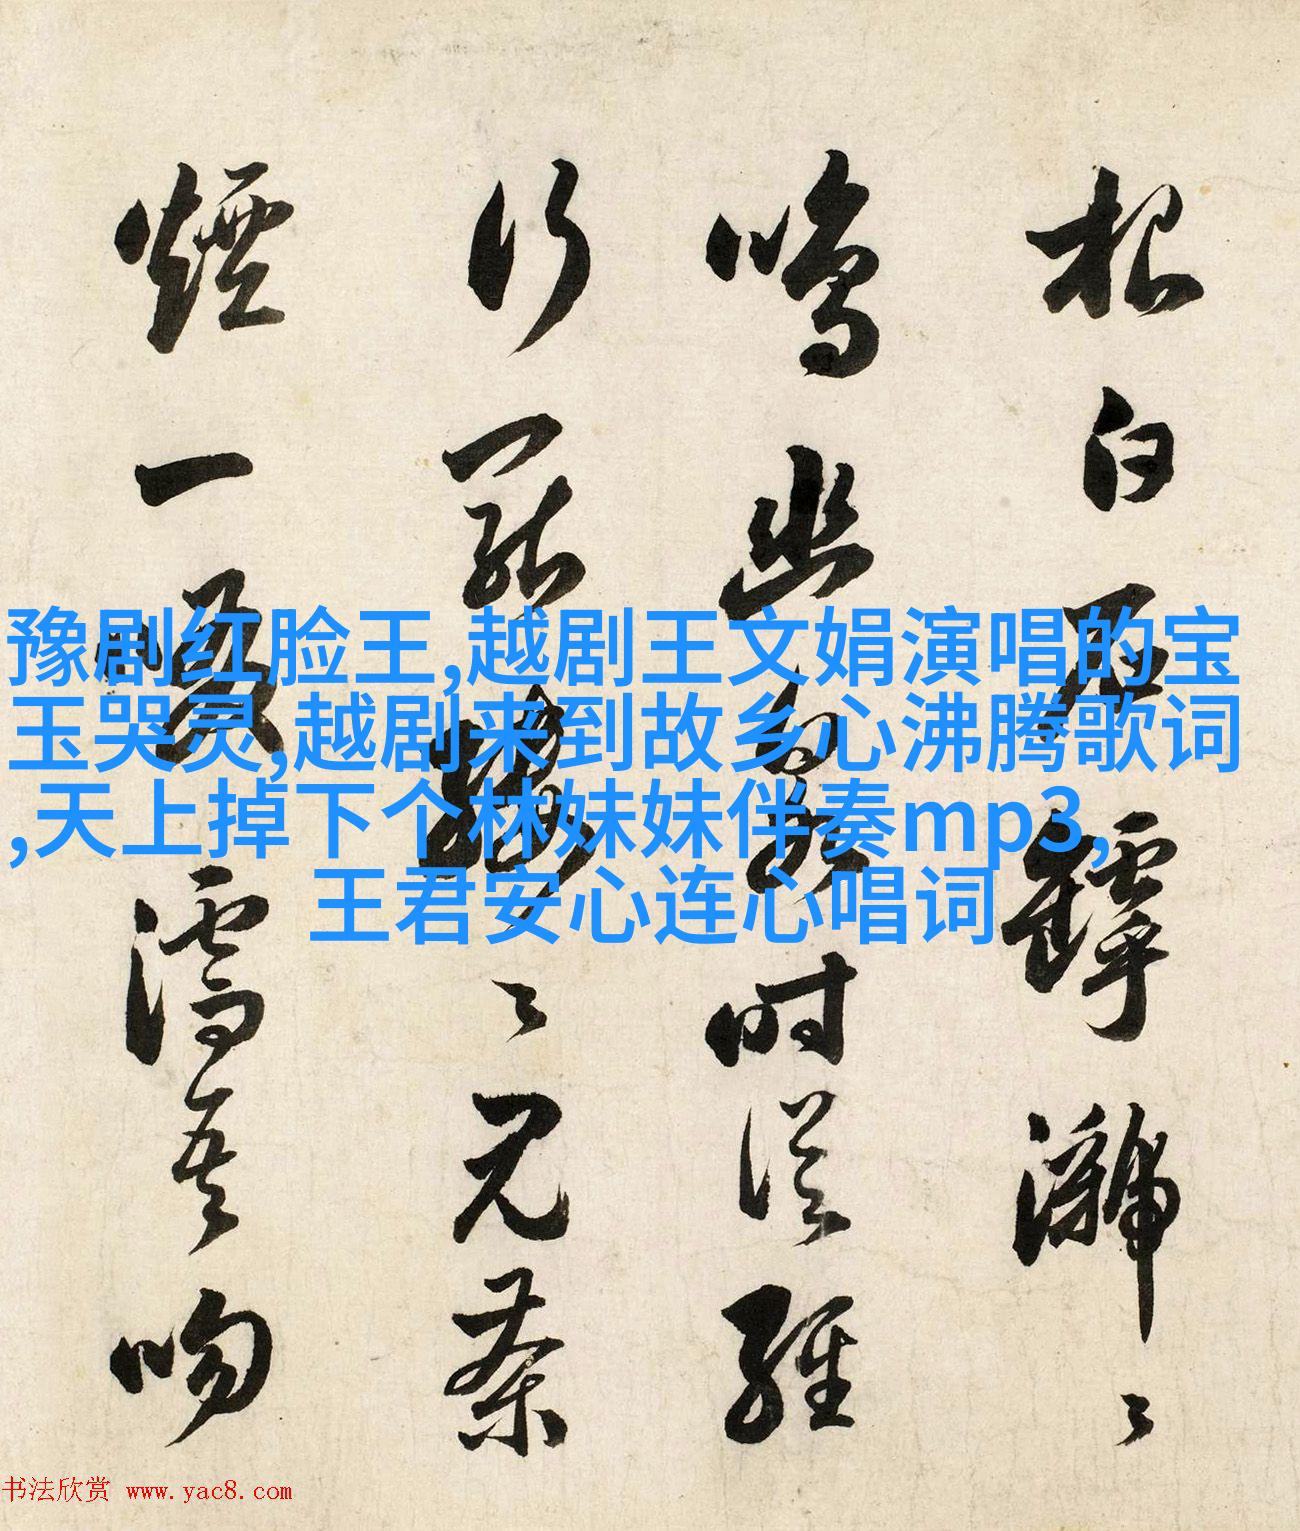 根白石罅
鳴幽時從
行罷元茶
煙一濡吾吻
豫剧红脸王,越剧王文娟演唱的宝
玉哭灵,越剧来到故乡心沸腾歌词
,天上掉下个林妹妹伴奏mp3,
王君安心连心唱词
书法欣赏 www.yac8.com